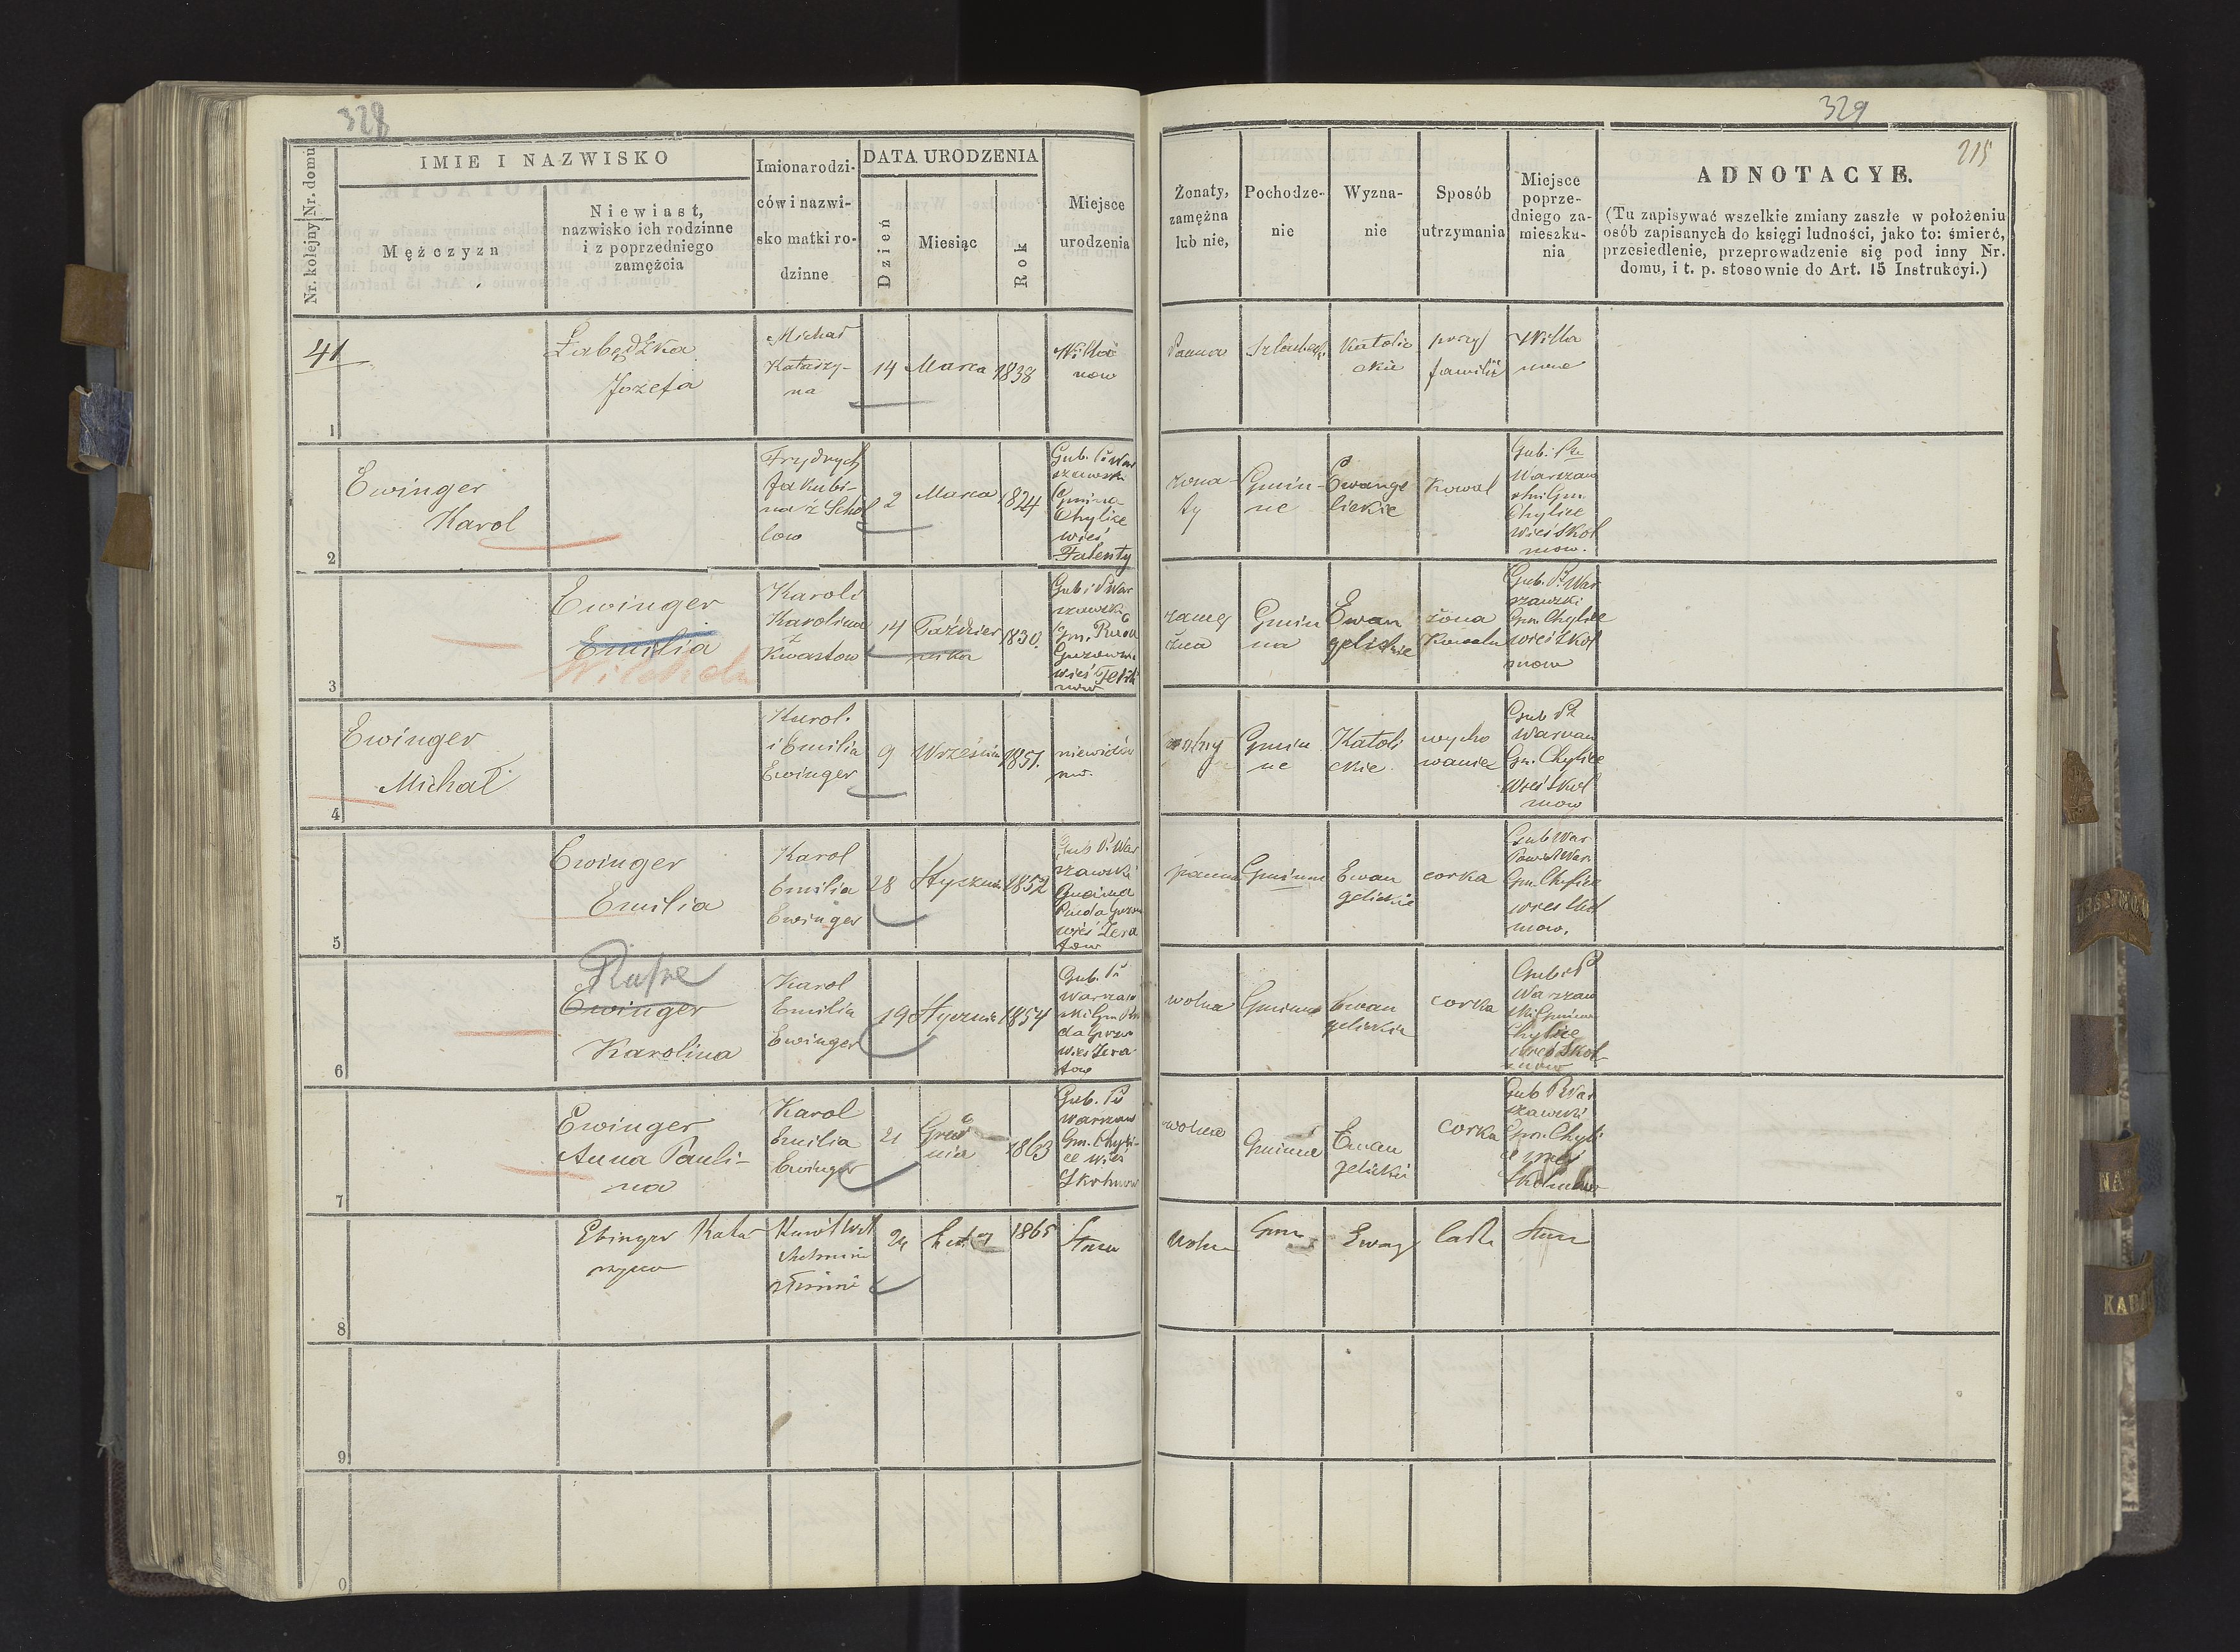 328
Nr. kolejny Nr. domu
IMIE I NAZWISKO
Mężczyzn
Niewiast,
nazwisko ich rodzinne
i z poprzedniego
zamężcia
Imiona rodzi-
ców i nazwi-
sko matki ro-
dzinne
DATA URODZENIA
Dzień
Miesiąc
Rok
Miejsce
urodzenia
41
1
Łabędzka
Jozefa
Michał
Katarzy-
na
14
Marca
1838
Willa
now
2
Ewinger
Karol
Frydrych
Jakubi-
na z Schol
low
2
Marca
1824
Gub. Pt War
szawski
Gmina
Chylice
wieś
Falenty
3
Ewinger
Emilia
Karol i
Karolina
z
Kwastow
14
Paździer
nika
1830.
Gub i Pt War
szawski
Gm.
wieś
4
Ewinger
Michał
Karol.
i Emilia
Ewinger
9
Września
1851.
niewiado
mo.
5
Ewinger
Emilia
Karol
Emilia
Ewinger
28
Stycznia
1852
Gub Pt War
szawski
Gmina
Ruda Guzow
wieś Zera
tow
6
Ewinger
Karolina
Karol
Emilia
Ewinger
19
Stycznia
1854
Gub. Pt
Warszaw
ski Gm Ru
da Guzow
wieś Zera
tow
7
Ewinger
Anna Pauli-
na
Karol
Emilia
Ewinger
21
Grud
nia
1863
Gub. Pt
Warszaw
Gm. Chyli-
ce wieś
Skolimow
8
Ebinger Kata
rzyna
24
1865
9
0
329
215
Żonaty,
zamężna
lub nie,
Pochodze-
nie
Wyzna-
nie
Sposób
utrzymania
Miejsce
poprze-
dniego za-
mieszka-
nia
ADNOTACYE.
(Tu zapisywać wszelkie zmiany zaszłe w położeniu
osób zapisanych do księgi ludności, jako to: śmierć,
przesiedlenie, przeprowadzenie się pod inny Nr.
domu, i t. p. stosownie do Art. 15 Instrukcyi.)
Panna
Szlachecki
Katolic
ckie
przy
familii
Willa
nowe
żona
ty
Gmin-
ne
Ewange
lickie
Kowal
Gub. Pt
Warszaw
ski Gm.
Chylice
wieś Skol
mow.
zamę
żna
Gmin
na
Ewan
gelickie
żona
Kowala
Gub. Pt War
szawski
Gm Chylice
wieś Skol
mow
wolny
Gmin
ne
Katoli
ckie
wycho
waniec
Gub Pt
Warszaw
Gm. Chylice
Wieś Skol
mow
panna
Gminne
Ewan
gelickie
corka
Gub War
Powiat War
Gm Chylice
wieś Skol
mow.
wolna
Gminne
Ewan
gelickie
corka
Gub i Pt
Warszaw
ski Gmina
Chylice
wieś Skol-
mow
wolna
Gminne
Ewan
gelickie
corka
Gub Pt War
szawski
Gm. Chyli
ce wieś
Skolimow
Wolna
Gmin
Ewang